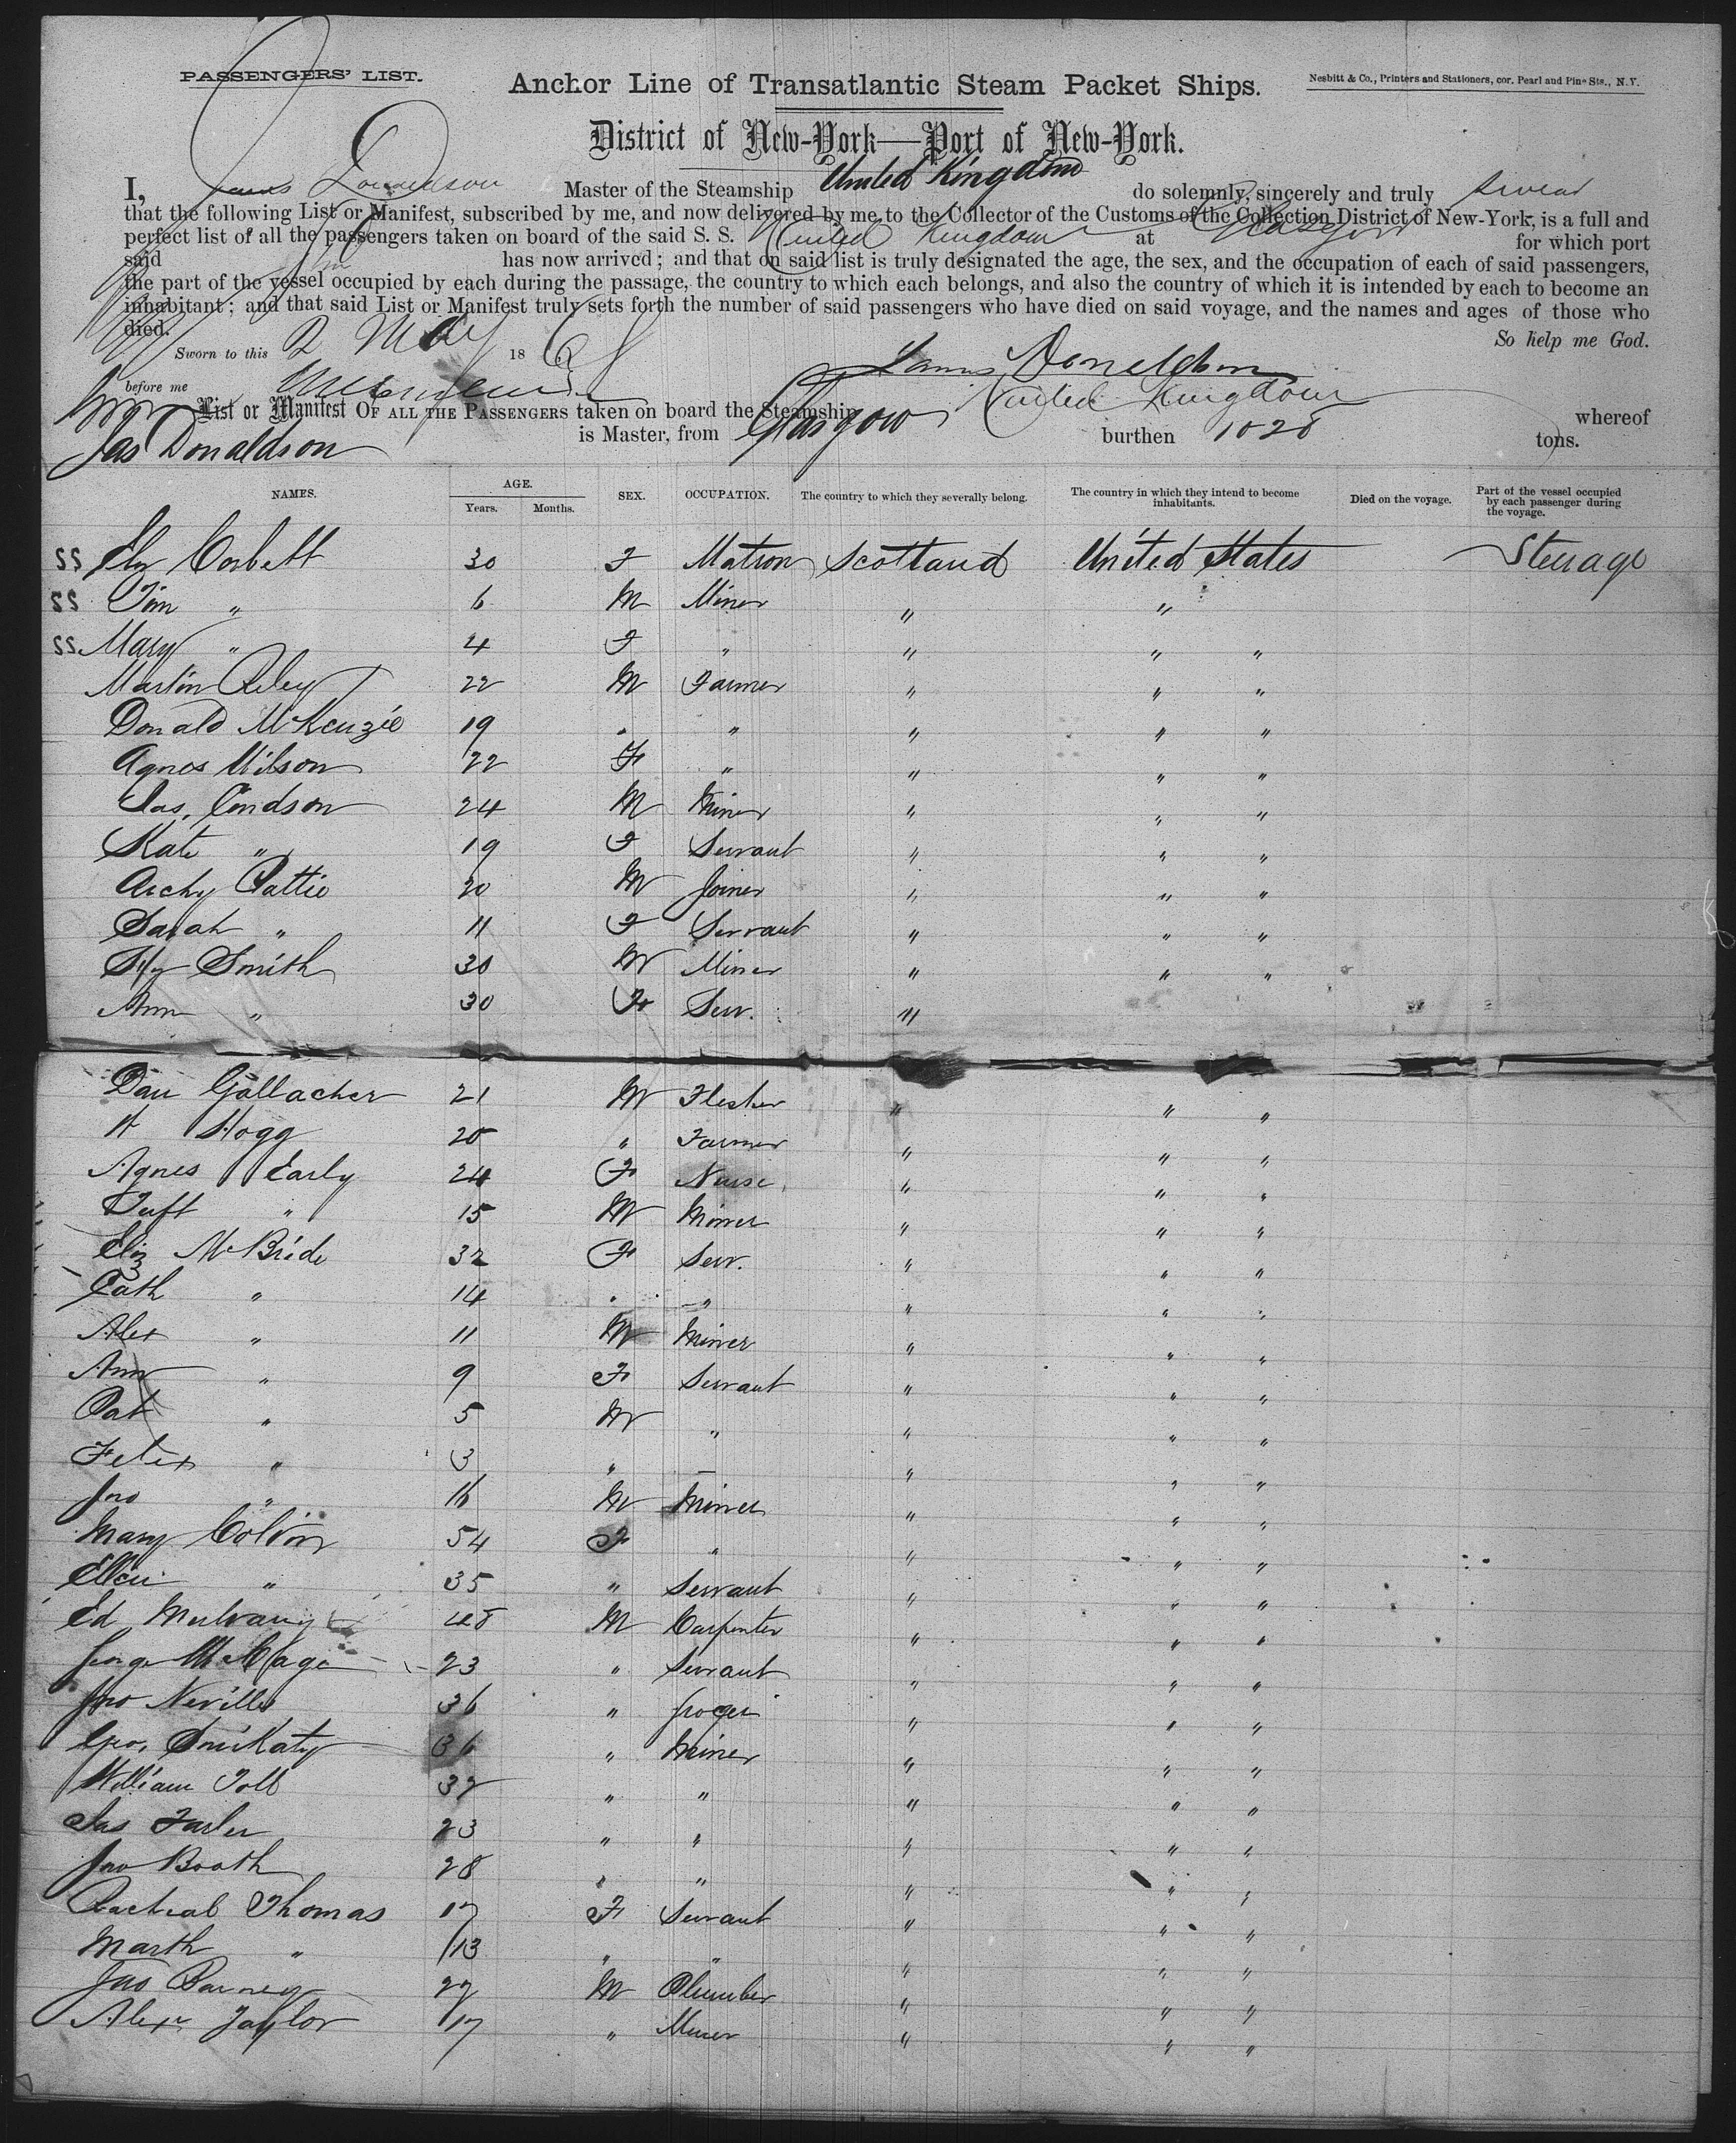 PASSENGERS' LIST.
Anchor Line of Transatlantic Steam Packet Ships.
Nesbitt & Co., Printers and Stationers, cor. Pearl and Pine Sts., N. Y.
District of New-York—Port of New-York.
I, James Donaldson Master of the Steamship United Kingdom do solemnly, sincerely and truly swear
that the following List or Manifest, subscribed by me, and now delivered by me to the Collector of the Customs of the Collection District of New-York, is a full and
perfect list of all the passengers taken on board of the said S. S. United Kingdom at Glasgow for which port
said has now arrived; and that on said list is truly designated the age, the sex, and the occupation of each of said passengers,
the part of the vessel occupied by each during the passage, the country to which each belongs, and also the country of which it is intended by each to become an
inhabitant; and that said List or Manifest truly sets forth the number of said passengers who have died on said voyage, and the names and ages of those who
died.
So help me God.
Sworn to this 2 May 186
James Donaldson
before me
List or Manifest OF ALL THE PASSENGERS taken on board the Steamship United Kingdom whereof
Jas Donaldson is Master, from Glasgow burthen 1028 tons.
NAMES. AGE. Years. Months. SEX. OCCUPATION. The country to which they severally belong. The country in which they intend to become inhabitants. Died on the voyage. Part of the vessel occupied by each passenger during the voyage.
SS Corbett 30 F Matron Scotland United States Steerage
SS Tim " 6 M Miner " "
SS Mary " 4 F " " " "
Martin Riley 22 M Farmer " " "
Donald McKenzie 19 " " " " "
Agnes Wilson 22 F " " " "
Jas. 24 M Miner " " "
Kate " 19 F Servant " " "
Archy Pattie 20 M Joiner " " "
Sarah " 11 F Servant " " "
Hy Smith 30 M Miner " " "
Ann " 30 F Serv. " " "
Dan Gallacher 21 M Flesher " " "
Hogg 20 " Farmer " " "
Agnes Early 24 F Nurse " " "
" 15 M Miner " " "
Eliz McBride 32 F Serv. " " "
Cath " 14 " " " " "
Alex " 11 M Miner " " "
Ann " 9 F Servant " " "
Pat " 5 M " " " "
Felix " 3 " — " " "
Jno " 16 M Miner " " "
Mary Colvin 54 F " " " "
Ellen " 35 " Servant " " "
Ed Mulvany 48 M Carpenter " " "
George 23 " Servant " " "
Jno Neville 36 " " " "
Geo. 36 " Miner " " "
William 32 " " " " "
Jas 23 " " " " "
Jno Booth 28 " " " " "
Racheal Thomas 17 F Servant " " "
Marth " 13 " " " " "
Jno 27 M Plumber " " "
Alexr Taylor 17 " Miner " " "